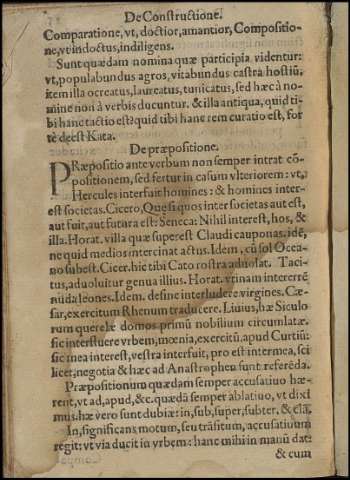 De Constructione.
Comparatione, vt, doctior, amantior, Compositio-
ne, vt indoctus, indiligens.
Sunt quædam nomina quæ participia videntur:
vt, populabundus agros, vitabundus castra hostiũ,
item illa ocreatus, laureatus, tunicatus, sed hæc à no-
mine non à verbis ducuntur. & illa antiqua, quid ti-
bi hanc tactio est? quid tibi hanc rem curatio est, for
tè deest Kata.
De præpositione.
PRæpositio ante verbum non semper intrat cõ-
positionem, sed fertur in casum vlteriorem: vt,
Hercules interfuit homines: & homines inter-
est societas. Cicero, Que si quos inter societas aut est,
aut fuit, aut futura est: Seneca: Nihil interest, hos, &
illa. Horat. villa quæ superest Claudi cauponas. idẽ,
ne quid medios intercinat actus. Idem, cũ sol Ocea-
no subest. Cicer. hic tibi Cato rostra aduolat. Taci-
tus, aduoluitur genua illius. Horat. vtinam intererrẽ
nuda leones. Idem. define interludere virgines. Cæ-
sar, exercitum Rhenum traducere. Liuius, hæ Siculo
rum querelæ domos primũ nobilium circumlatæ.
sic interfluere vrbem, mœnia, exercitũ, apud Curtiũ:
sic mea interest, vestra interfuit, pro est inter mea, sci
licet, negotia & hæc ad Anastrophen sunt referẽda.
Præpositionum quædam semper accusatiuo hæ-
rent, vt ad, apud, &c. quædã semper ablatiuo, vt dixi
mus. hæ vero sunt dubiæ: in, sub, super, subter, & clã,
In, significans motum, seu trãsitum, accusatiuum
regit: vt via ducit in vrbem: hanc mihi in manũ dat:
& cum